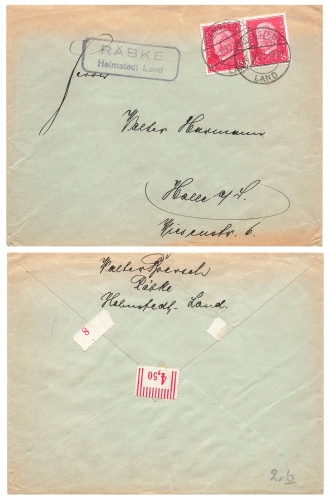 RÄBKE
Helmstedt Land
LAND
15
Herrn
Walter Hartmann
Halle a/S.
Wiesenstr. 6.
Walter Boersch
Räbke
Helmstedt-Land.
8
4,50